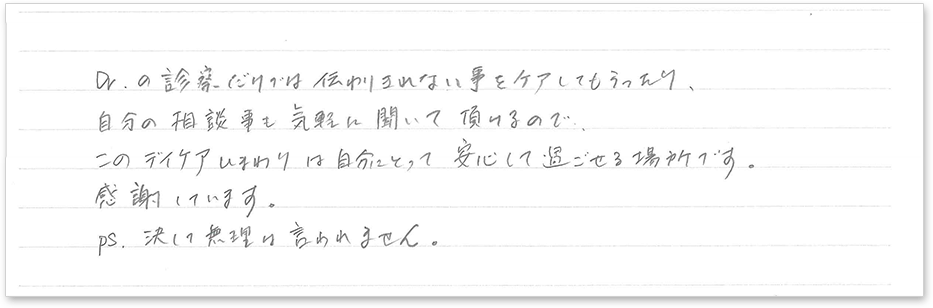 Dr. の診察だけでは伝わりきれない事をケアしてもらったり、
自分の相談事も気軽に聞いて頂けるので、
このデイケアひまわりは自分にとって安心して過ごせる場所です。
感謝しています。
ps. 決して無理は言われません。